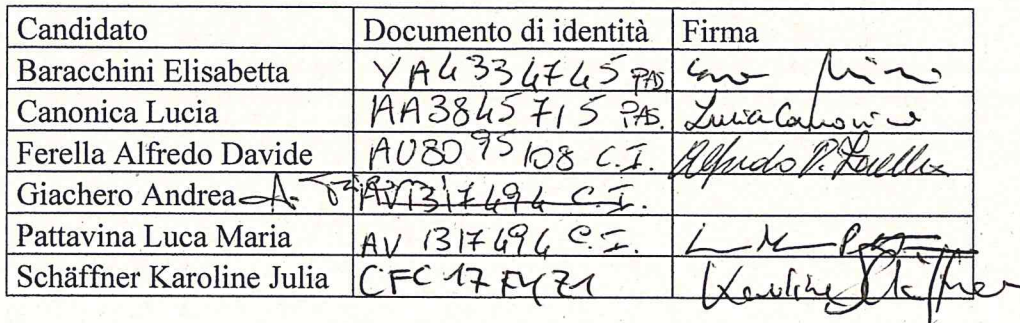 Candidato Documento di identità Firma
Baracchini Elisabetta YA4334745 PAS
Canonica Lucia AA3845715 PAS. Lucia Canonica
Ferella Alfredo Davide AU8095108 C.I. Alfredo D. Ferella
Giachero Andrea AV1317494 C.I.
Pattavina Luca Maria AV 1317494 C.I.
Schäffner Karoline Julia Karoline Schäffner